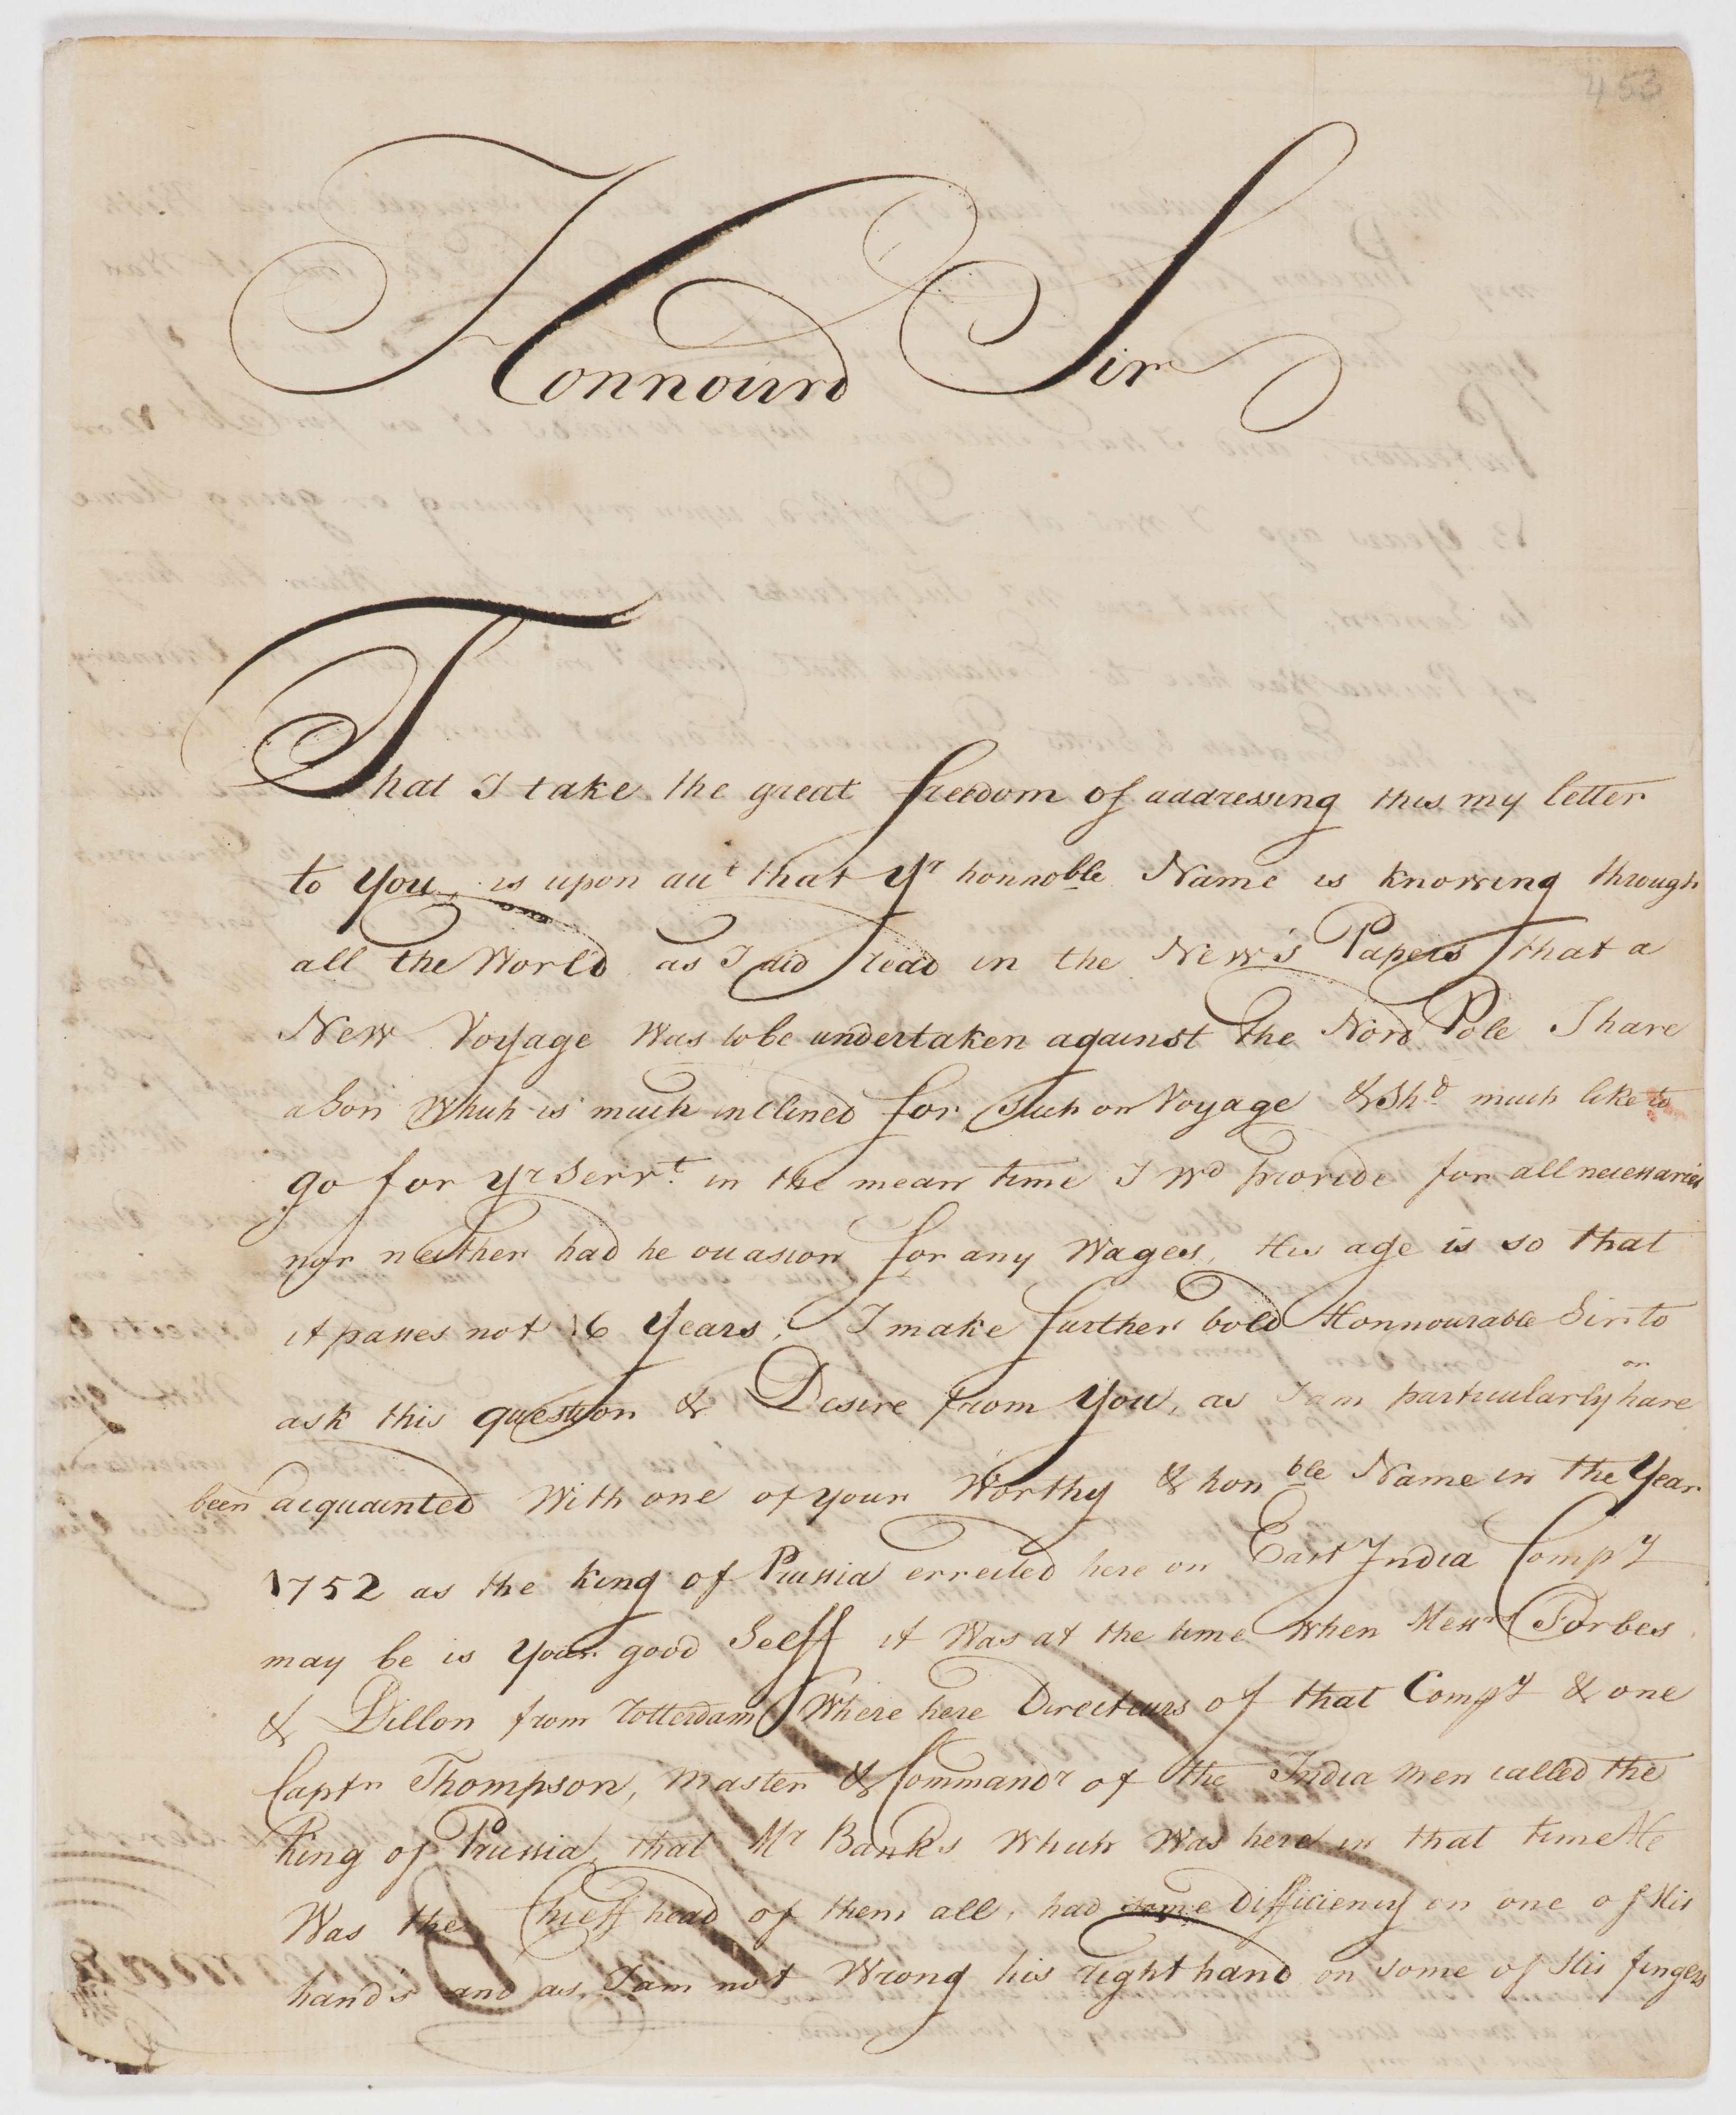 453
Honnourd Sir
That I take the great freedom of addressing this my letter
to You, is upon acct that Yr honnoble Name is knowing through
all the World as I did read in the New's Papers that a
New Voyage Was to be undertaken against the Nord Pole I have
a Son Which is much inclined for Such on Voyage & Shd much like to
go for Yr Servt. in the mean time I Wd provide for all necessaries
nor neither had he occasion for any Wages, His age is so that
it passes not 16 Years, I make further bold Honnourable Sir to
ask this question & Desire from You, as I am particularly or have
been acquainted With one of your Worthy & honble Name in the Year
1752 as the king of Prussia errected here on East India Compy
may be is Your good Selff it Was at the time When Messrs Forbes
& Dillon from Rotterdam Where here Directeurs of that Compy & one
Captn Thompson, Master & Commandr of the India men called the
King of Prussia, that Mr Banks Which Was here in that time He
Was the Chieff head of them all, had some Difficiency on one of His
hand's and as I am not Wrong his right hand on some of His fingers